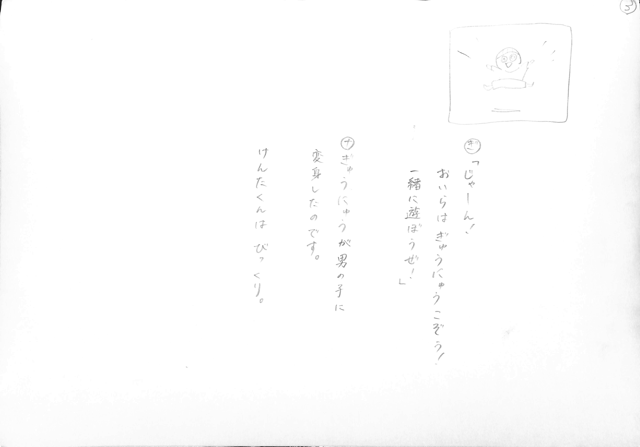 3
ぎ「じゃーん!
おいらはぎゅうにゅうこぞう!
一緒に遊ぼうぜ!」
ナ ぎゅうにゅうが男の子に
変身したのです。
けんたくんは びっくり。